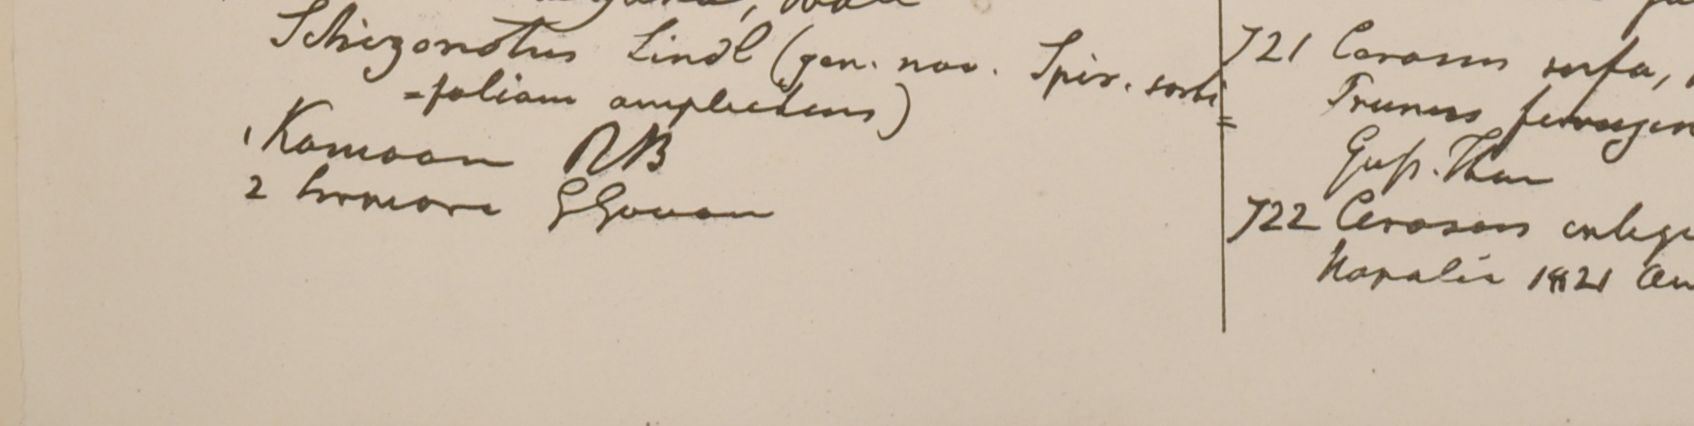 Schizonotus Lindl (gen. nov. Spir. sorbi
=foliam amplectens)
1 Kamaon RB
2 Sirmore GGovan
721 Cerasus rufa,
Prunus ferrugin
722 Cerasus
Napalia 1821